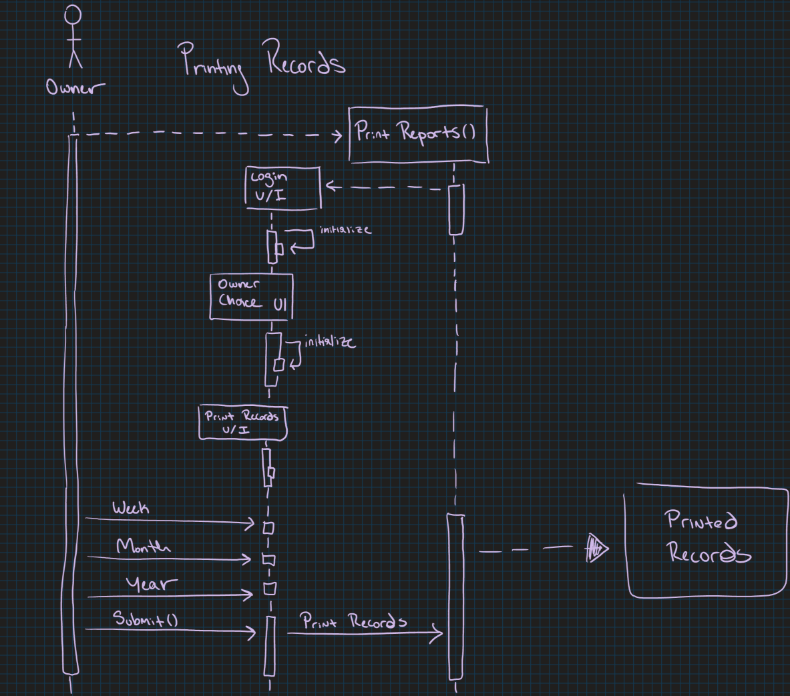 Printing Records
Owner
Print Reports()
Login
U/I
initialize
Owner
Choice UI
initialize
Print Records
U/I
Week
Month
Year
Submit()
Print Records
Printed
Records